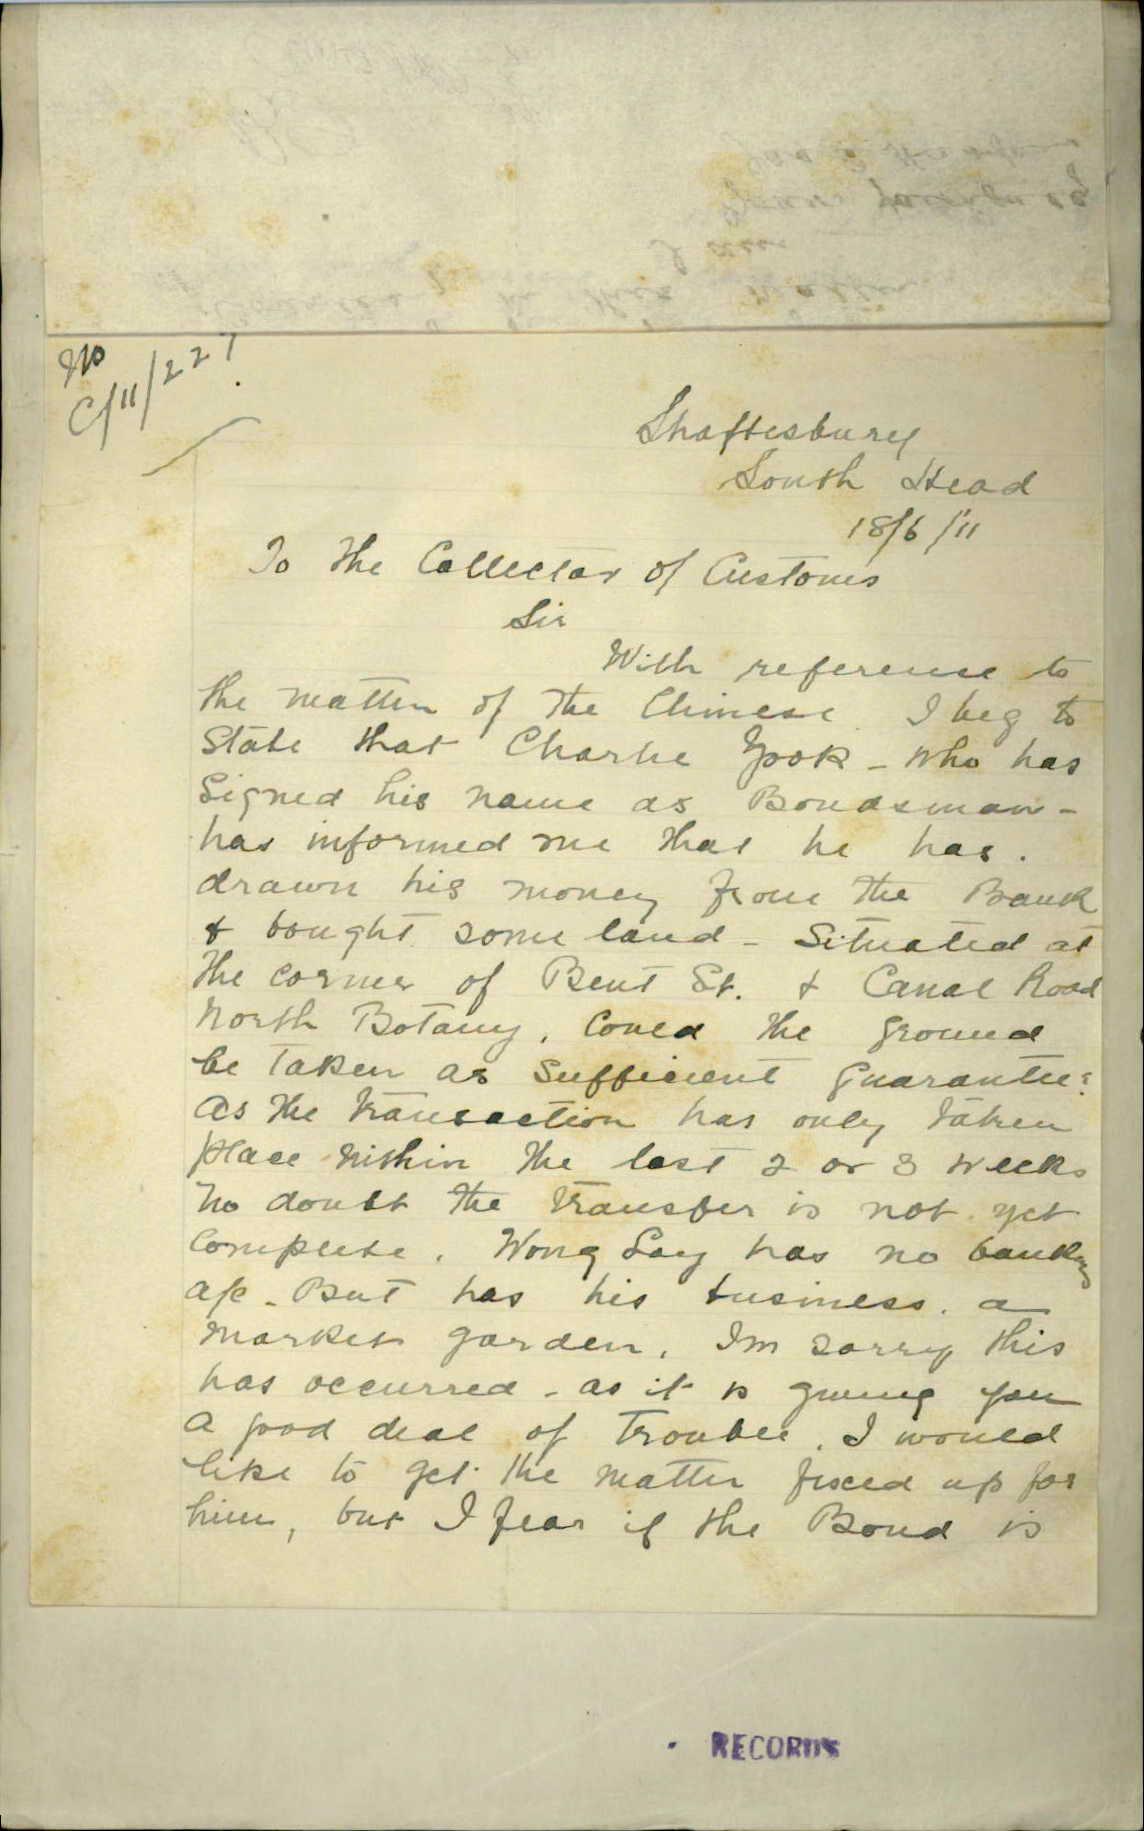 No
C/11/227
Shaftesbury
South Head
18/6/11
To the Collector of Customs
Sir
With reference to
the matter of the Chinese I beg to
State that Charlie Yook - who has
Signed his name as Bondsman -
has informed me that he has.
drawn his money from the Bank
& bought some land - Situated at
the corner of Bent St. & Canal Road
North Botany. Could the ground
be taken as sufficient guarantee?
As the transaction has only taken
place within the last 2 or 3 weeks
no doubt the transfer is not yet
Complete. Wong Say has no banking
a/c - But has his business. a
market garden. Im sorry this
has occurred - as it is giving you
a good deal of trouble. I would
like to get the matter fixed up for
him, but I fear if the Bond is
RECORDS